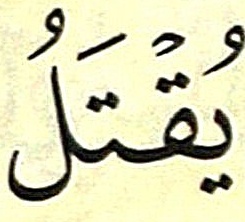 يُقْتَلُ